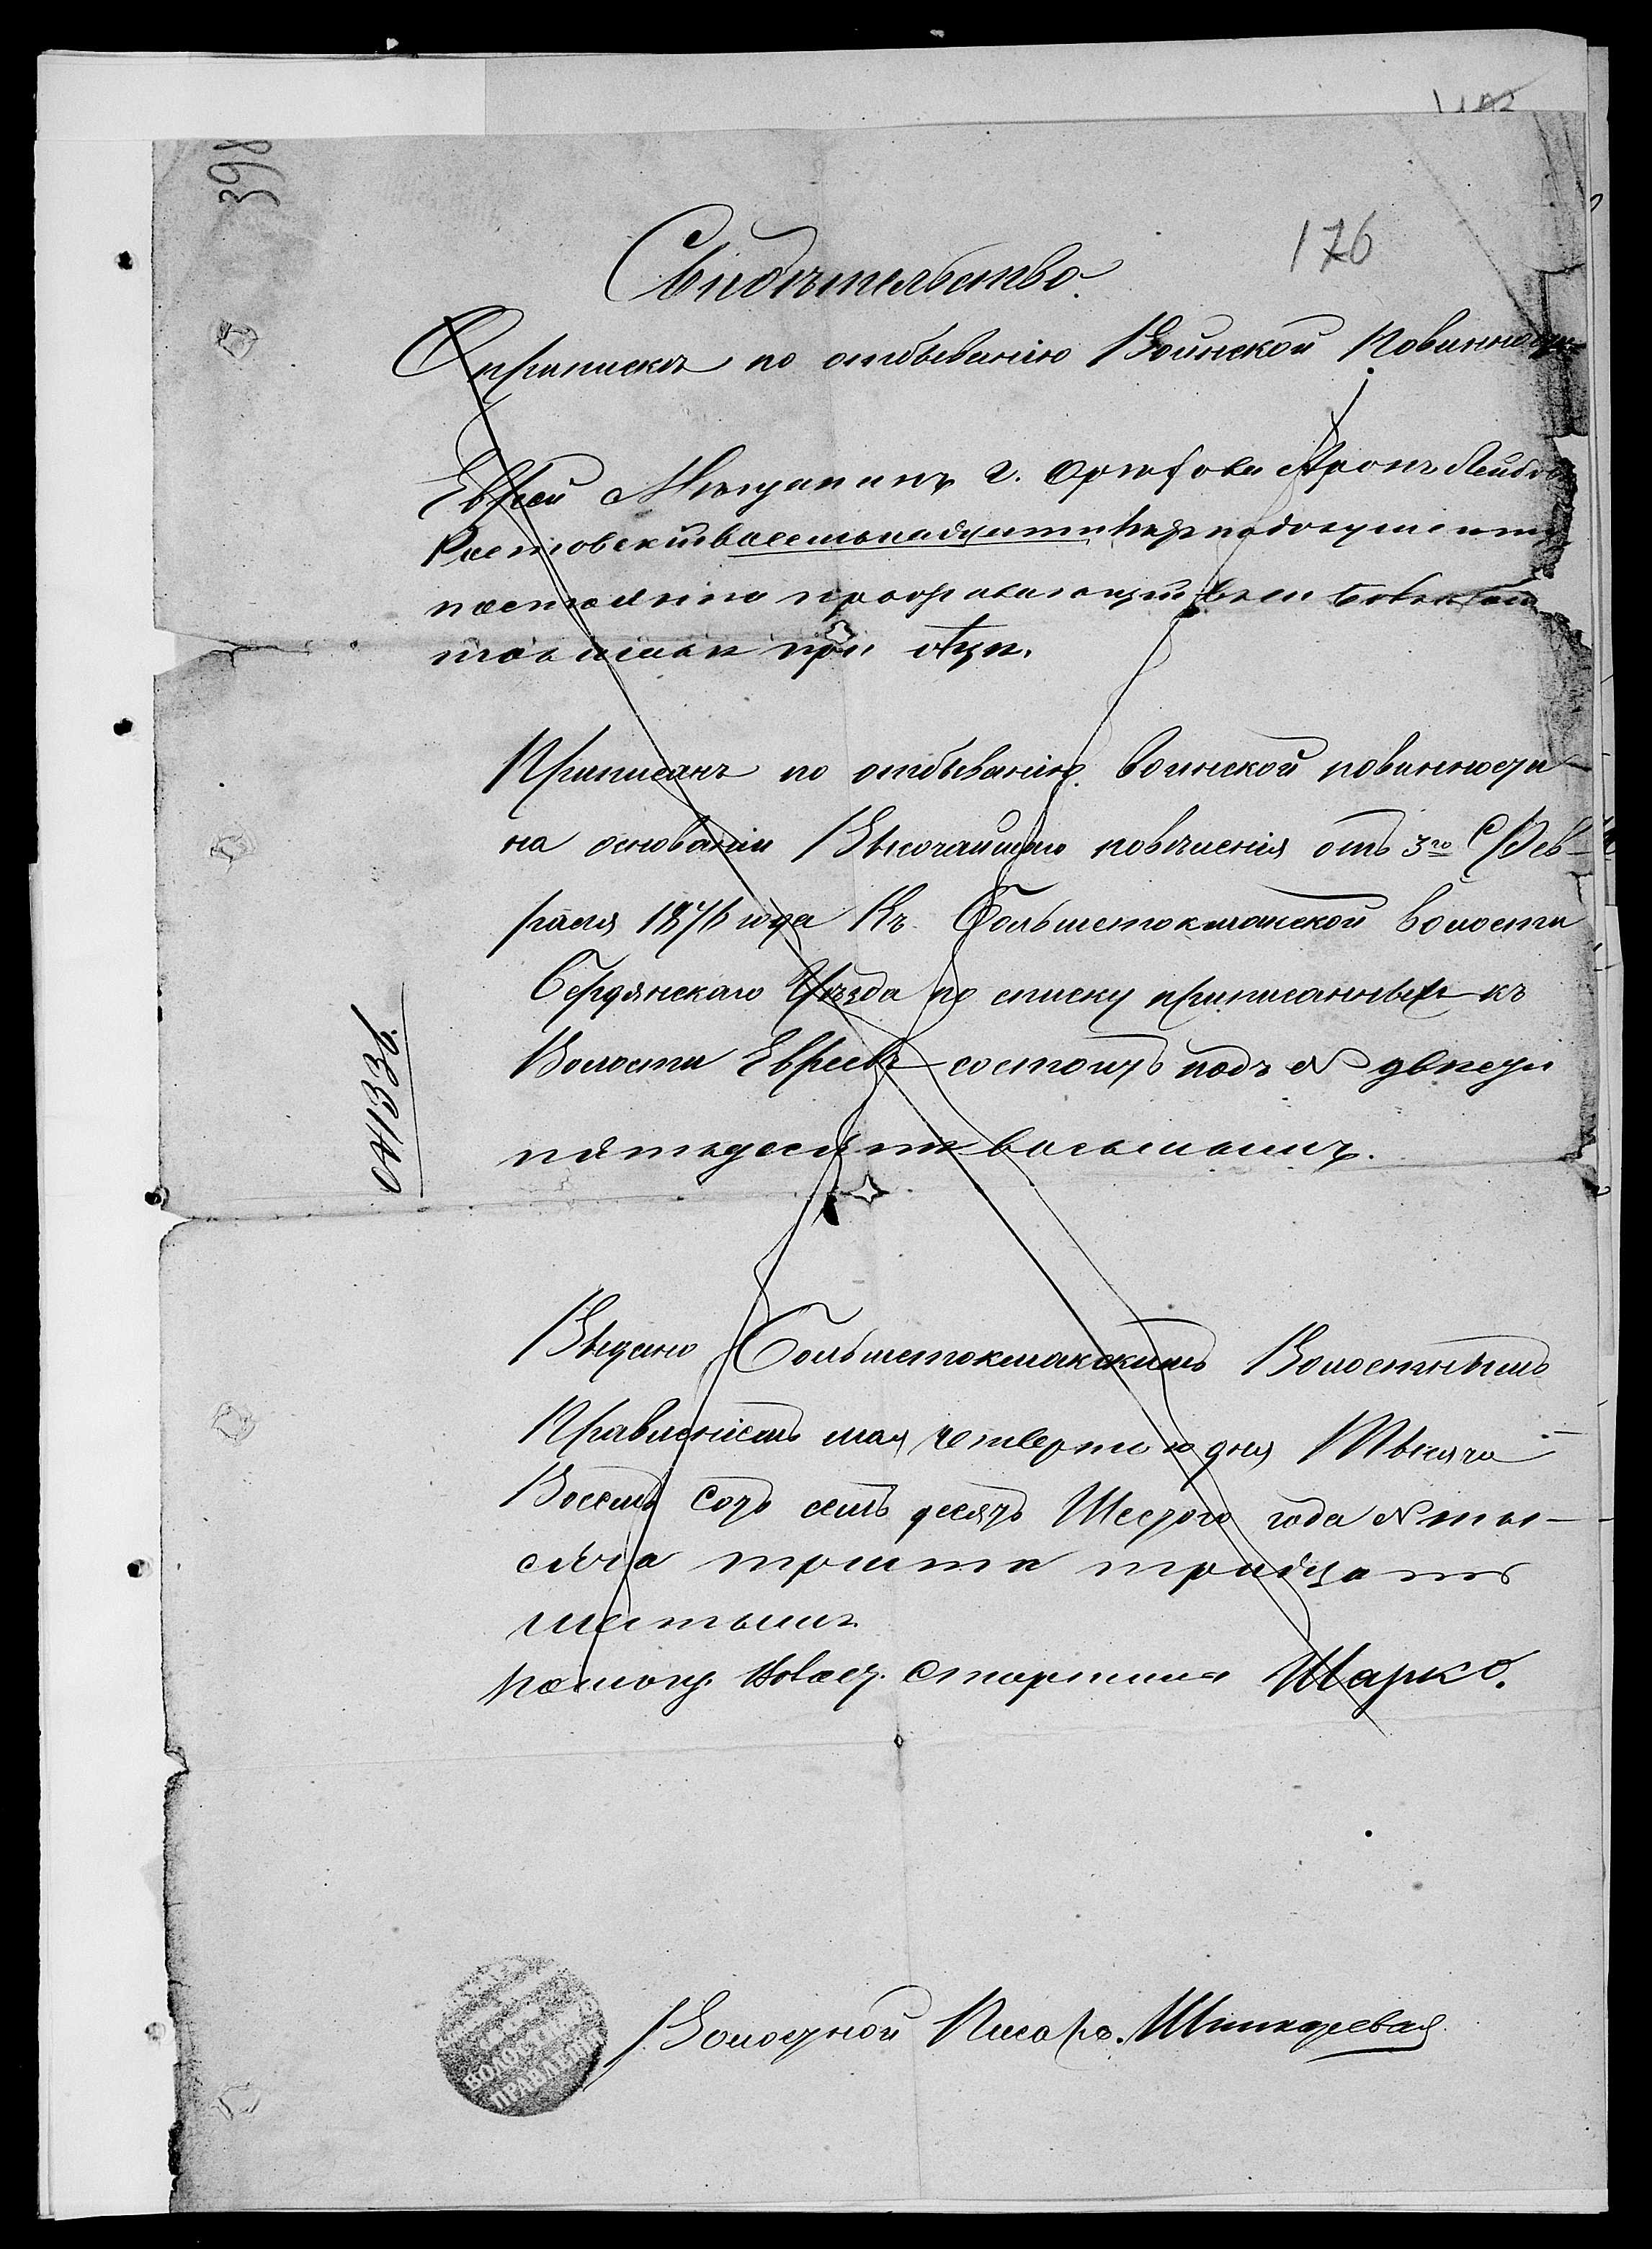 398
176
Свидѣтельство.
О припискѣ по отбыванію Воинской Повинности
Еврей Мѣщанинъ г. Орѣхова Аронъ Лейбов
Ростовскій восемьнадцати лѣтъ по документу
постоянно проживающій въ м. Большомъ
токмакѣ при отцѣ.
Приписанъ по отбыванію воинской повинности
на основаніи Высочайшаго повѣленія отъ 3го Фев-
раля 1876 года Къ Большетокмакской волости
Бердянскаго Уѣзда по списку приписанныхъ къ
Волости Евреевъ состоитъ подъ № двѣсти
пятьдесятъ восьмымъ.
№ 1336.
Выдано Большетокмакскимъ Волостнымъ
Правленіемъ мая четвертого дня Тысяча
Восемь сотъ семь десятъ Шестого года № ты-
сяча триста тридцать
шестымъ
Помощ. Волост. Старшина Шарко.
Волостной Писарь
ВОЛОСТН.
ПРАВЛЕНІЯ